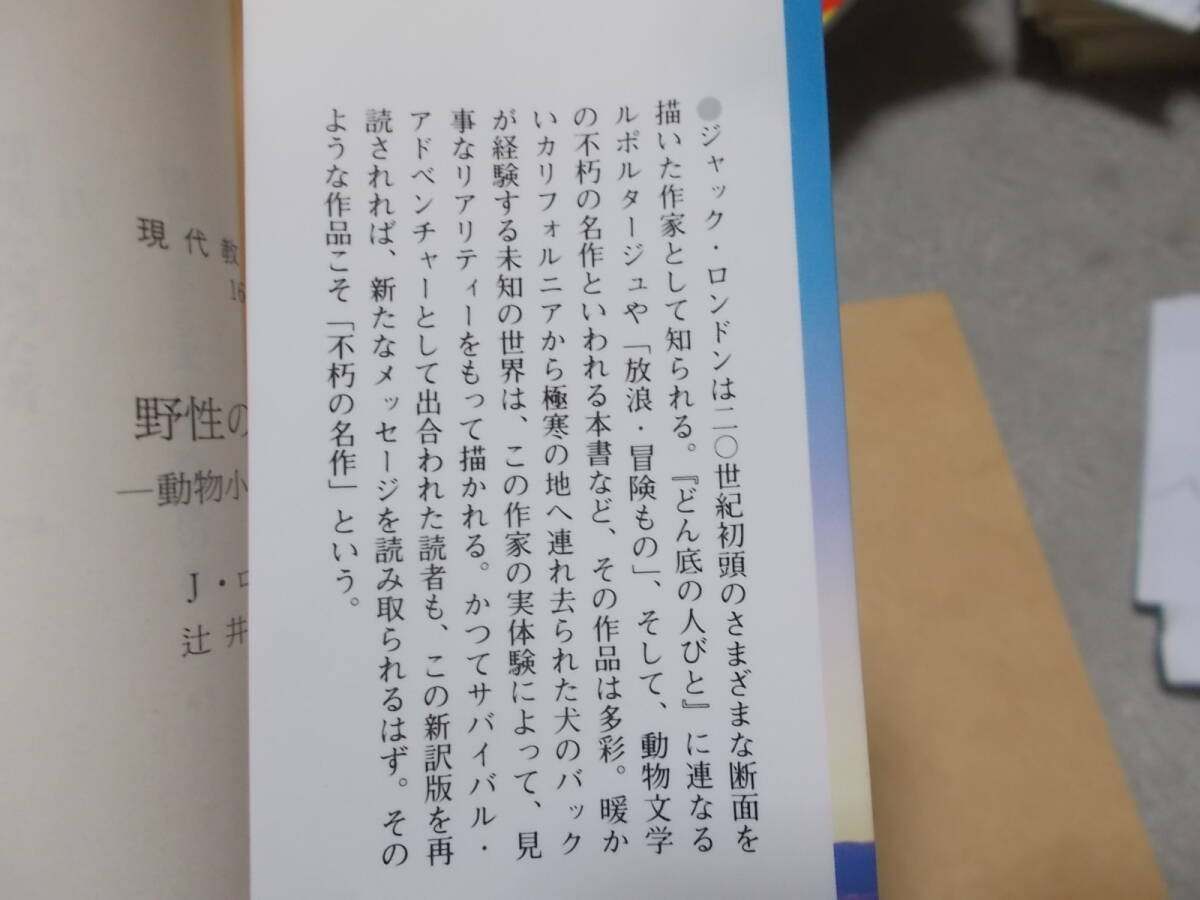 ●ジャック・ロンドンは二〇世紀初頭のさまざまな断面を
描いた作家として知られる。『どん底の人びと』に連なる
ルポルタージュや「放浪・冒険もの」、そして、動物文学
の不朽の名作といわれる本書など、その作品は多彩。暖か
いカリフォルニアから極寒の地へ連れ去られた犬のバック
が経験する未知の世界は、この作家の実体験によって、見
事なリアリティーをもって描かれる。かつてサバイバル・
アドベンチャーとして出合われた読者も、この新訳版を再
読されれば、新たなメッセージを読み取られるはず。その
ような作品こそ「不朽の名作」という。
現代教
16
野性の
―動物小
J・ロ
辻井